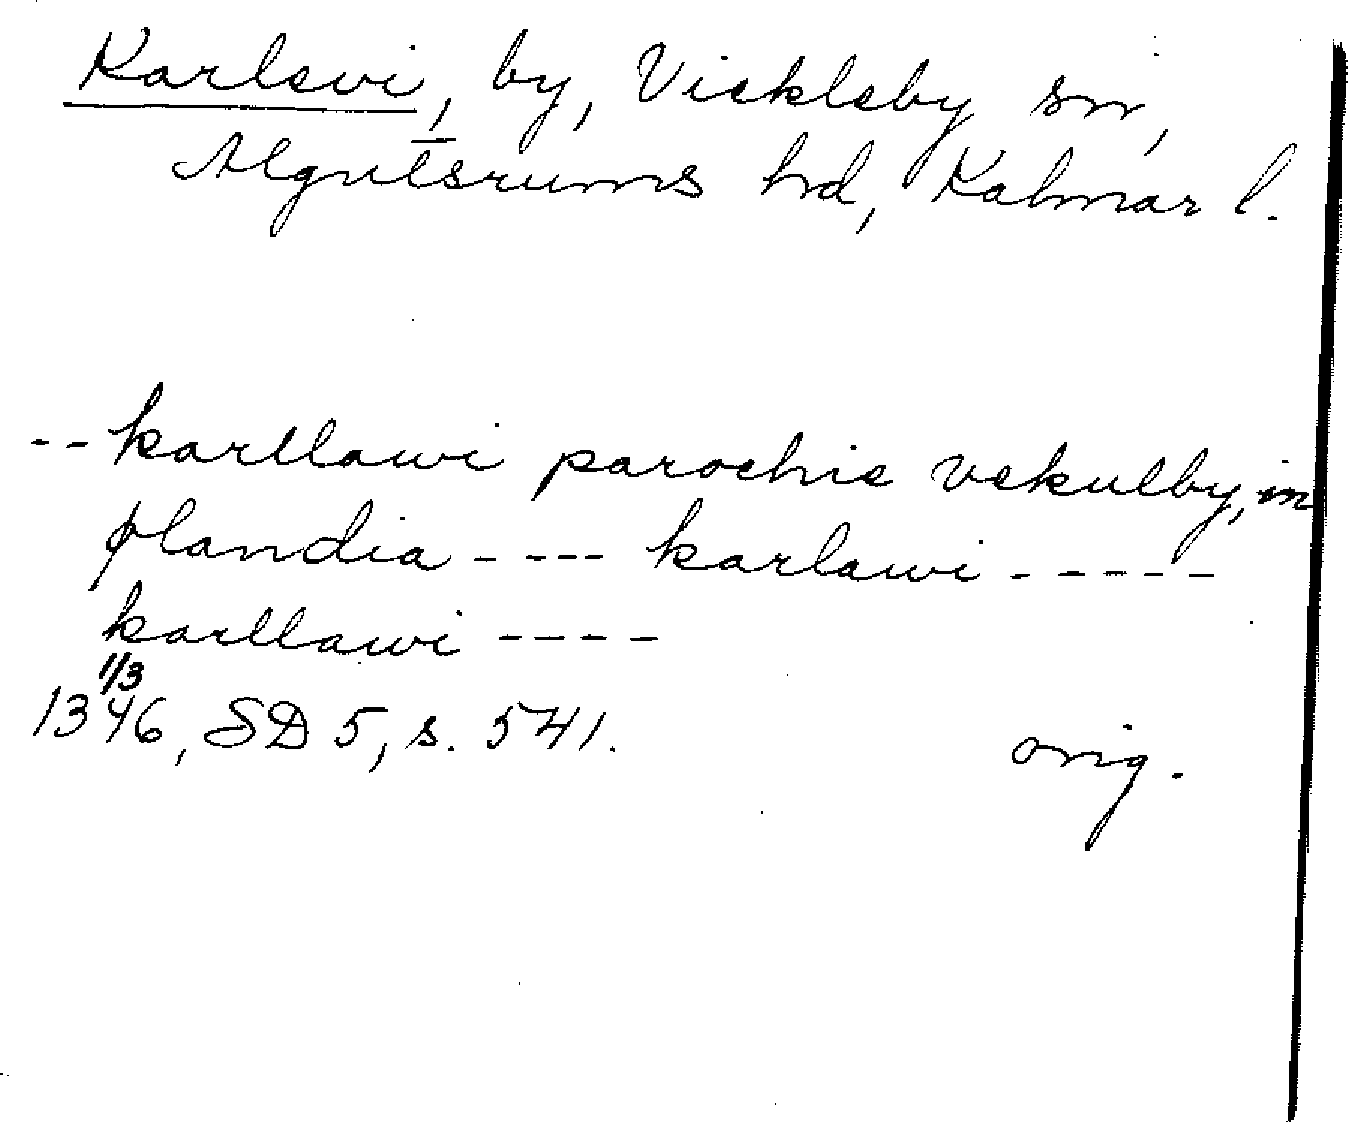 Karlevi, by, Vickleby sn,
Algutsrums hd, Kalmar l.
-- karllawi parochie vekulby, in
ølandia - --- karlawi - - - - -
karllawi - - - -
1/3
1346, SD 5, s. 541. orig.